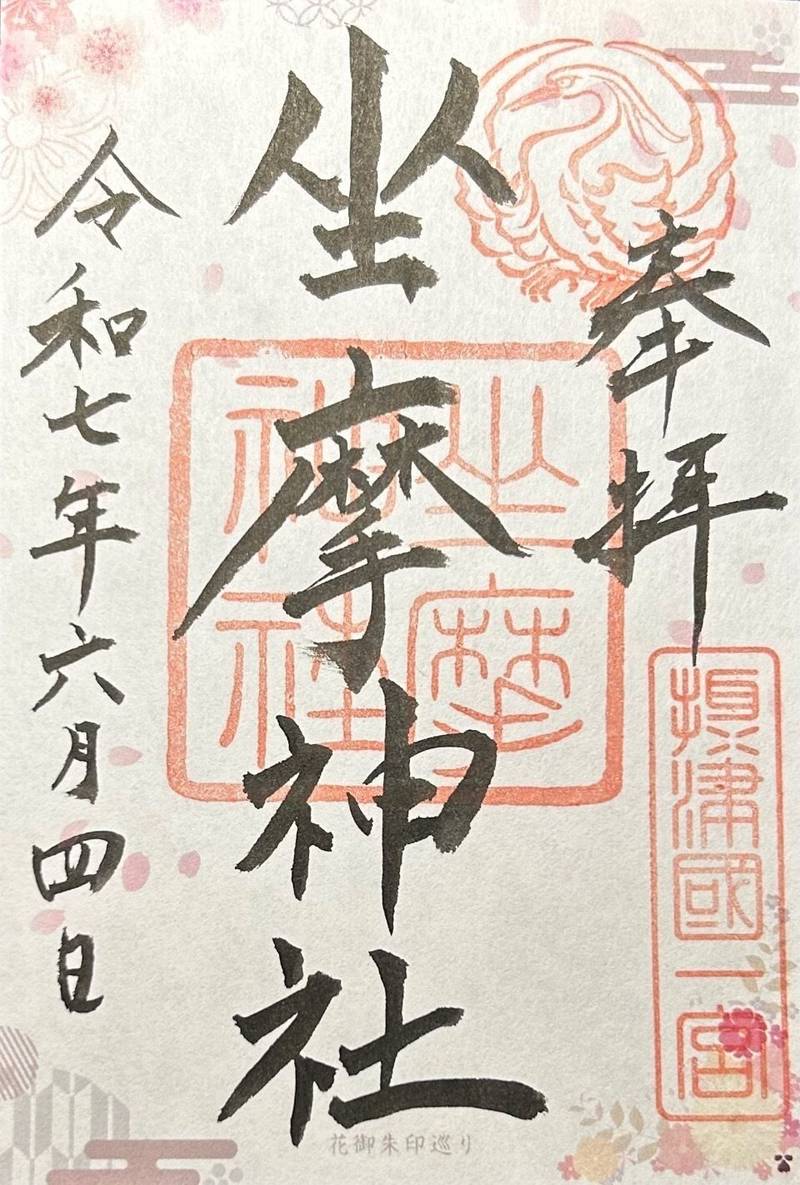 奉拝
摂津國一宮
坐摩神社
坐摩
神社
令和七年六月四日
花御朱印巡り